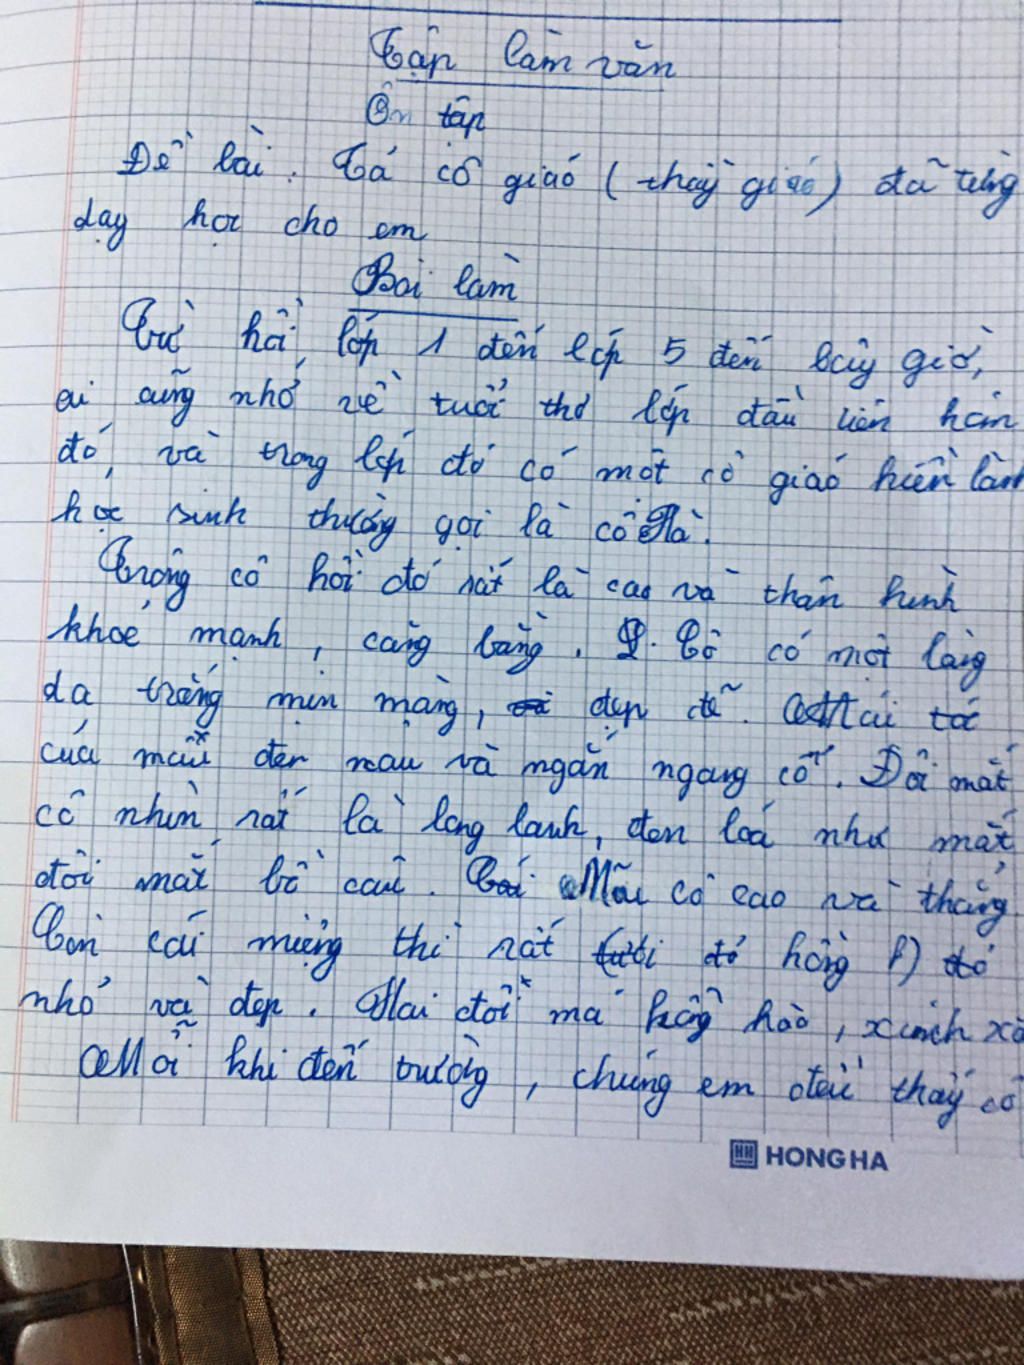 Tập làm văn
Ôn tập
Đề bài. Tả cô giáo (thầy giáo) đã từng
dạy học cho em
Bài làm
Từ hồi lớp 1 đến lớp 5 đến bây giờ,
ai cũng nhớ về tuổi thơ lớp đầu tiên hơn
đó, và trong lớp đó có một cô giáo hiền lành
học sinh thường gọi là cô Hà.
Trông cô hồi đó rất là cao và thân hình
khoẻ mạnh, căng bằng. Cô có một làng
da trắng mịn màng, đẹp đẽ. Mái tóc
của mầu đen nau và ngắn ngang cổ. Đôi mắt
cô nhìn rất là long lanh, đen loá như mắt
đôi mắt bồ câu. Mũi cô cao và thẳng.
Còn cái miệng thì rất hồng
nhỏ và đẹp. Hai đôi má hồng hào, xinh xắ
Mỗi khi đến trường, chúng em đều thấy cô
HONG HA